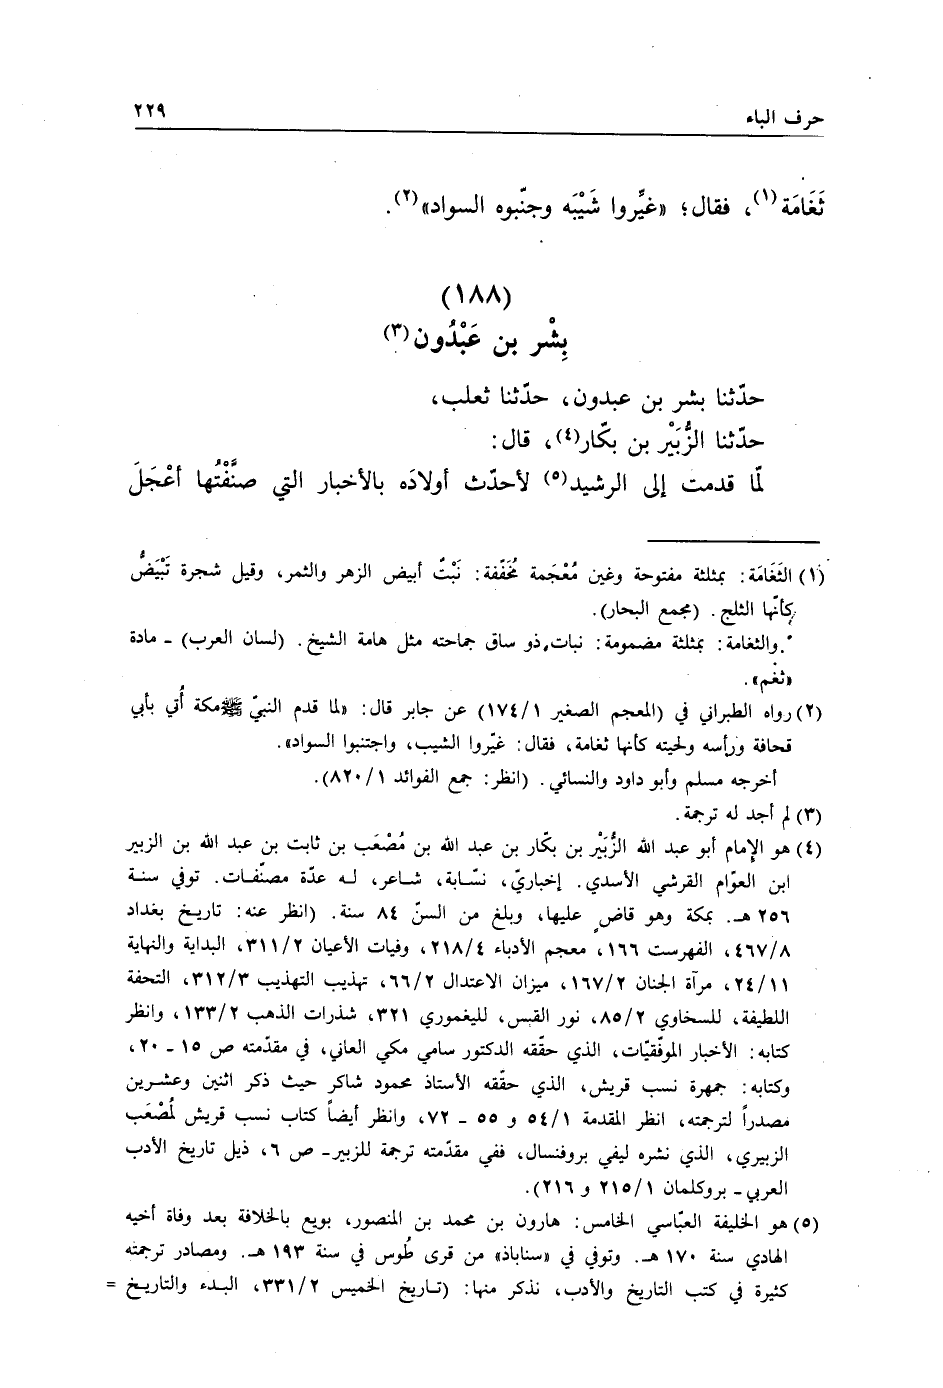 حرف الباء ٢٢٩
ثَغَامَة(١)، فقال؛ «غيِّروا شَيْبَه وجنّبوه السواد»(٢).
(١٨٨)
بِشْر بن عَبْدُون(٣)
حدّثنا بشر بن عبدون، حدّثنا ثعلب،
حدّثنا الزُّبَيْر بن بكّار(٤)، قال:
لمّا قدمت إلى الرشيد(٥) لأحدّث أولادَه بالأخبار التي صنَّفْتُها أعْجَلَ
(١) الثَغَامَة: بمثلثة مفتوحة وغين مُعْجَمة مُخَفّفة: نَبْتٌ أبيض الزهر والثمر، وقيل شجرة تَبْيَضُّ
كأنّها الثلج. (مجمع البحار).
والثغامة: بمثلثة مضمومة: نبات ذو ساق جماحته مثل هامة الشيخ. (لسان العرب) ـ مادة
«ثغم».
(٢) رواه الطبراني في (المعجم الصغير ١/ ١٧٤) عن جابر قال: «لما قدم النبيّ ﷺ مكة أُتي بأبي
قحافة ورأسه ولحيته كأنها ثغامة، فقال: غيّروا الشيب، واجتنبوا السواد».
أخرجه مسلم وأبو داود والنسائي. (انظر: جمع الفوائد ١/ ٨٢٠).
(٣) لم أجد له ترجمة.
(٤) هو الإمام أبو عبد الله الزُّبَيْر بن بكّار بن عبد الله بن مُصْعَب بن ثابت بن عبد الله بن الزبير
ابن العوّام القرشي الأسدي. إخباريّ، نسّابة، شاعر، له عدّة مصنّفات. توفي سنة
٢٥٦ هـ. بمكة وهو قاضٍ عليها، وبلغ من السنّ ٨٤ سنة. (انظر عنه: تاريخ بغداد
٨/ ٤٦٧، الفهرست ١٦٦، معجم الأدباء ٤/ ٢١٨، وفيات الأعيان ٢/ ٣١١، البداية والنهاية
١١/ ٢٤، مرآة الجنان ٢/ ١٦٧، ميزان الاعتدال ٢/ ٦٦، تهذيب التهذيب ٣/ ٣١٢، التحفة
اللطيفة، للسخاوي ٢/ ٨٥، نور القبس، لليغموري ٣٢١، شذرات الذهب ٢/ ١٣٣، وانظر
كتابه: الأخبار الموفّقيّات، الذي حقّقه الدكتور سامي مكي العاني، في مقدّمته ص ١٥ ـ ٢٠،
وكتابه: جمهرة نسب قريش، الذي حقّقه الأستاذ محمود شاكر حيث ذكر اثنين وعشرين
مصدراً لترجمته، انظر المقدمة ١/ ٥٤ و ٥٥ ـ ٧٢، وانظر أيضاً كتاب نسب قريش لمُصْعَب
الزبيري، الذي نشره ليفي بروفنسال، ففي مقدّمته ترجمة للزبير ـ ص ٦، ذيل تاريخ الأدب
العربي ـ بروكلمان ١/ ٢١٥ و ٢١٦).
(٥) هو الخليفة العبّاسي الخامس: هارون بن محمد بن المنصور، بويع بالخلافة بعد وفاة أخيه
الهادي سنة ١٧٠ هـ. وتوفي في «سناباذ» من قرى طُوس في سنة ١٩٣ هـ. ومصادر ترجمته
كثيرة في كتب التاريخ والأدب، نذكر منها: (تاريخ الخميس ٢/ ٣٣١، البدء والتاريخ =